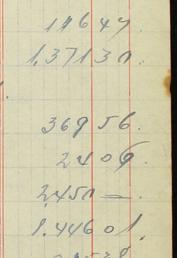 116 47.
1,371 30.
369 56.
24 06.
2,450 =.
1.446 01.